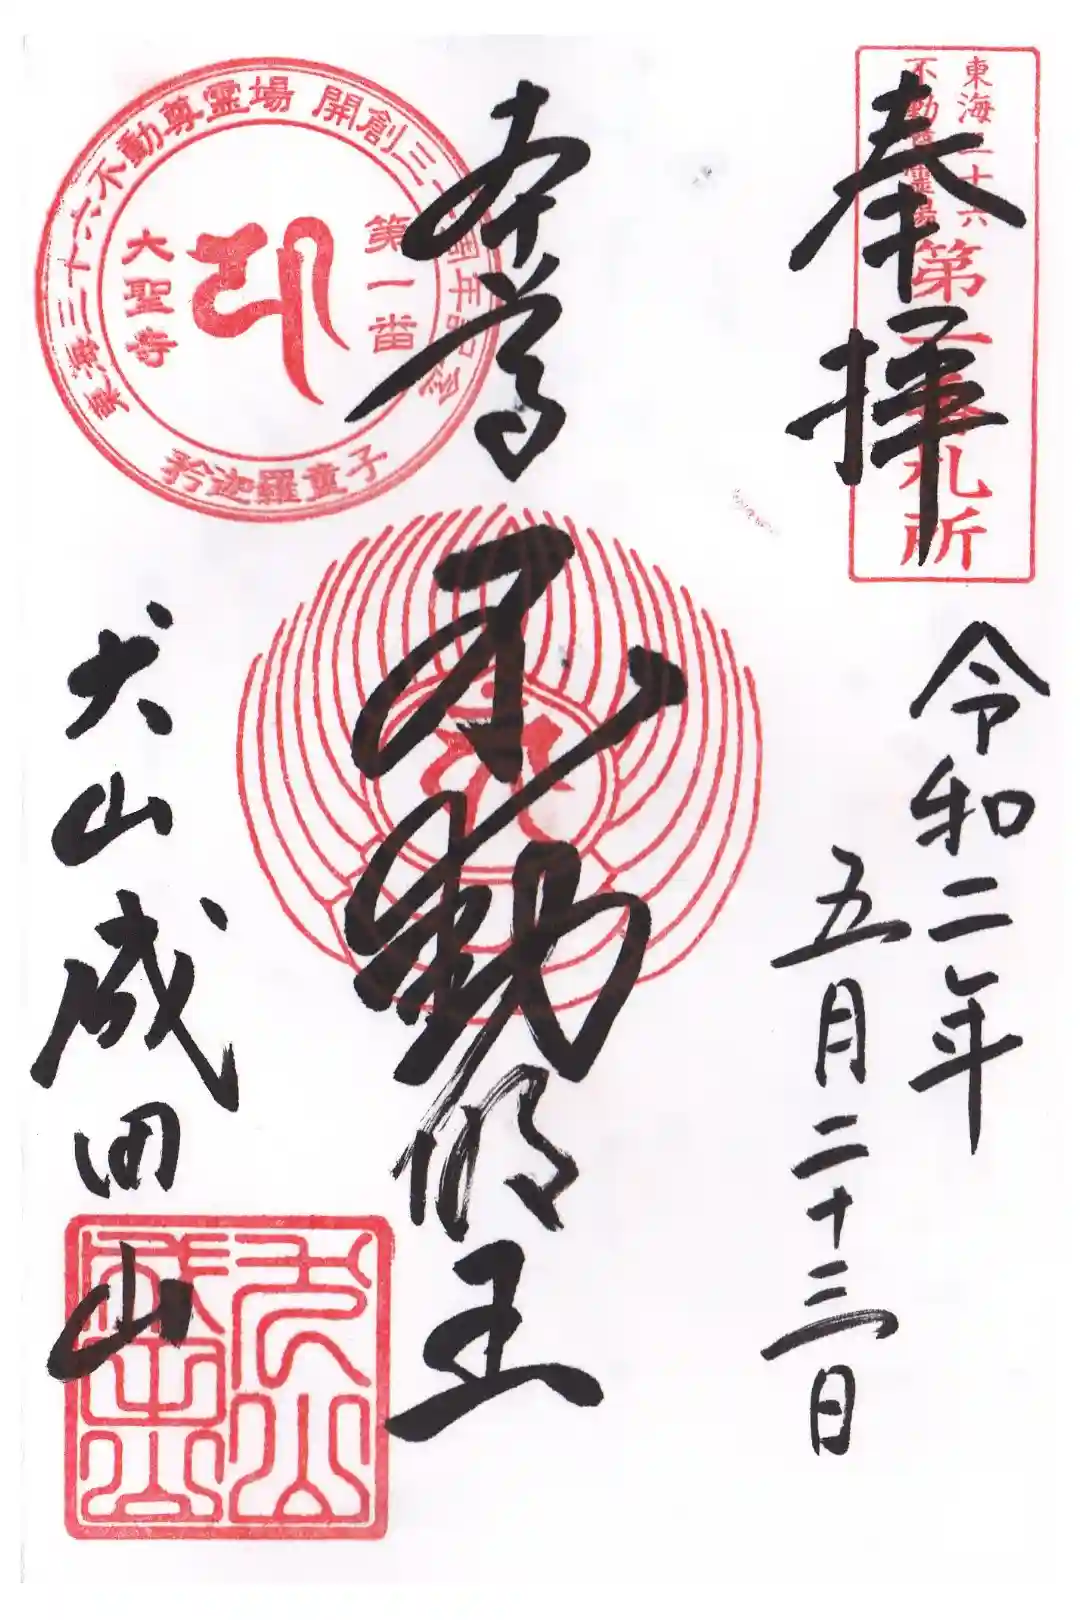 奉拝
東海三十六
不動尊霊場
第一番札所
令和二年
五月二十三日
本尊
不動明王
東海三十六不動尊霊場 開創三十周年記念
第一番
大聖寺
矜迦羅童子
犬山成田山
犬山
成田山